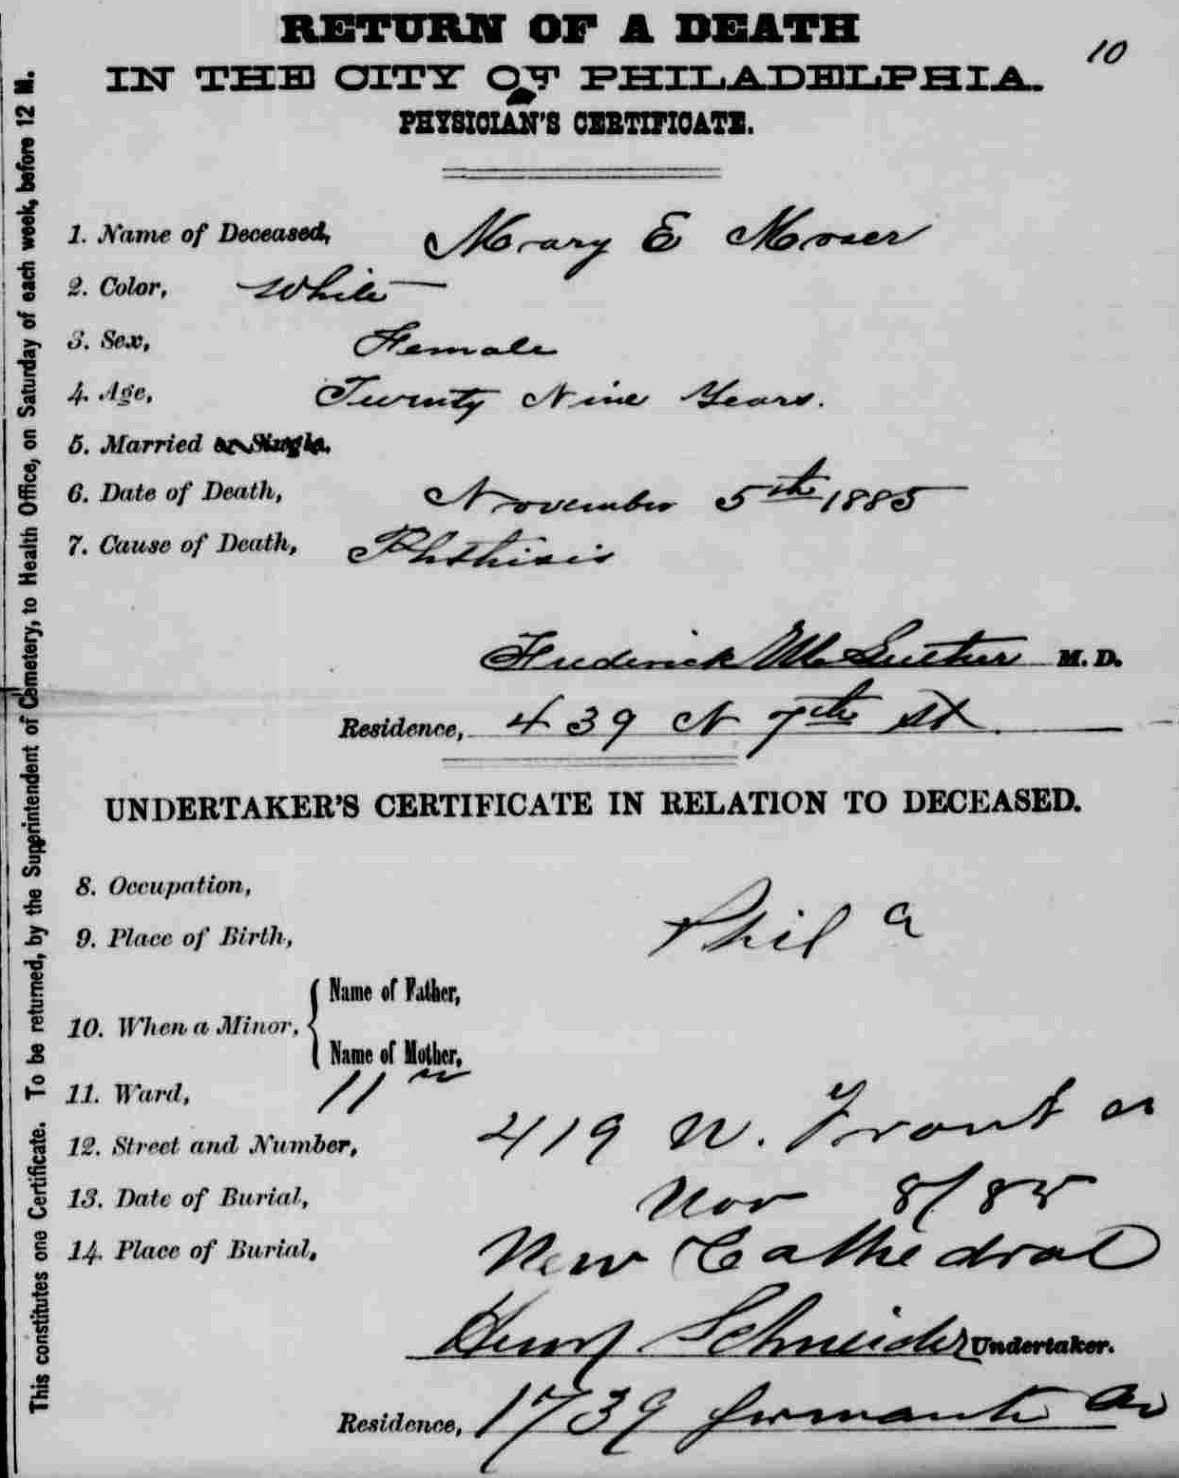 10
RETURN OF A DEATH
IN THE CITY OF PHILADELPHIA.
PHYSICIAN'S CERTIFICATE.
1. Name of Deceased, Mary E Moser
2. Color, White
3. Sex, Female
4. Age, Twenty Nine Years.
5. Married or Single.
6. Date of Death, November 5th 1885
7. Cause of Death, Phthisis
Frederick M. Luther M. D.
Residence, 439 N 7th St.
UNDERTAKER'S CERTIFICATE IN RELATION TO DECEASED.
8. Occupation,
9. Place of Birth, Phil a
10. When a Minor,
Name of Father,
Name of Mother,
11. Ward, 11
12. Street and Number, 419 N. Front
13. Date of Burial, Nov 8/85
14. Place of Burial, New Cathedral
Henry Schneider Undertaker.
Residence, 1739 Av
This constitutes one Certificate. To be returned, by the Superintendent of Cemetery, to Health Office, on Saturday of each week, before 12 M.